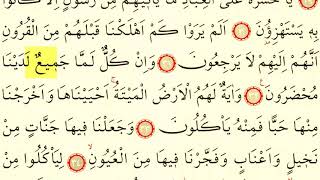 يَا حَسْرَةً عَلَى الْعِبَادِ مَا يَأْتِيهِمْ مِنْ رَسُولٍ اِلَّا كَانُوا
بِهٖ يَسْتَهْزِؤُنَ ۝ اَلَمْ يَرَوْا كَمْ اَهْلَكْنَا قَبْلَهُمْ مِنَ الْقُرُونِ
اَنَّهُمْ اِلَيْهِمْ لَا يَرْجِعُونَ ۝ وَاِنْ كُلٌّ لَمَّا جَمٖيعٌ لَدَيْنَا
مُحْضَرُونَ ۝ وَاٰيَةٌ لَهُمُ الْاَرْضُ الْمَيْتَةُۚ اَحْيَيْنَاهَا وَاَخْرَجْنَا
مِنْهَا حَبًّا فَمِنْهُ يَأْكُلُونَ ۝ وَجَعَلْنَا فٖيهَا جَنَّاتٍ مِنْ
نَخٖيلٍ وَاَعْنَابٍ وَفَجَّرْنَا فٖيهَا مِنَ الْعُيُونِۙ ۝ لِيَأْكُلُوا مِنْ